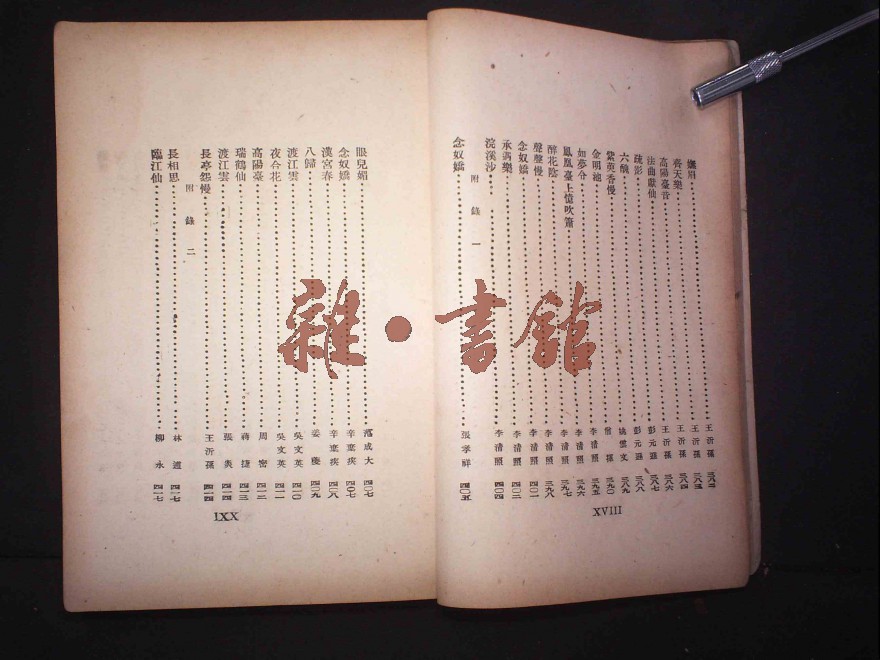 嫵眉 王沂孫 三八三
齊天樂 王沂孫 三八四
高陽臺 王沂孫 三八五
法曲獻仙 王沂孫 三八六
疏影 彭元遜 三八七
六醜 彭元遜 三八八
紫萸香慢 姚雲文 三八九
金明池 僧揮 三九〇
如夢令 李清照 三九五
鳳凰臺上憶吹簫 李清照 三九六
醉花陰 李清照 三九七
聲聲慢 李清照 三九八
念奴嬌 李清照 四〇一
永遇樂 李清照 四〇二
浣溪沙 李清照 四〇四
附錄一
念奴嬌 張孝祥 四〇五
XVIII
眼兒媚 范成大 四〇七
念奴嬌 辛棄疾 四〇七
漢宮春 辛棄疾 四〇八
八歸 姜夔 四〇九
渡江雲 吳文英 四一〇
夜合花 吳文英 四一一
高陽臺 周密 四一二
瑞鶴仙 蔣捷 四一三
渡江雲 張炎 四一四
長亭怨慢 王沂孫 四一四
附錄二
長相思 林逋 四一七
臨江仙 柳永 四一七
IXX
雜·書館